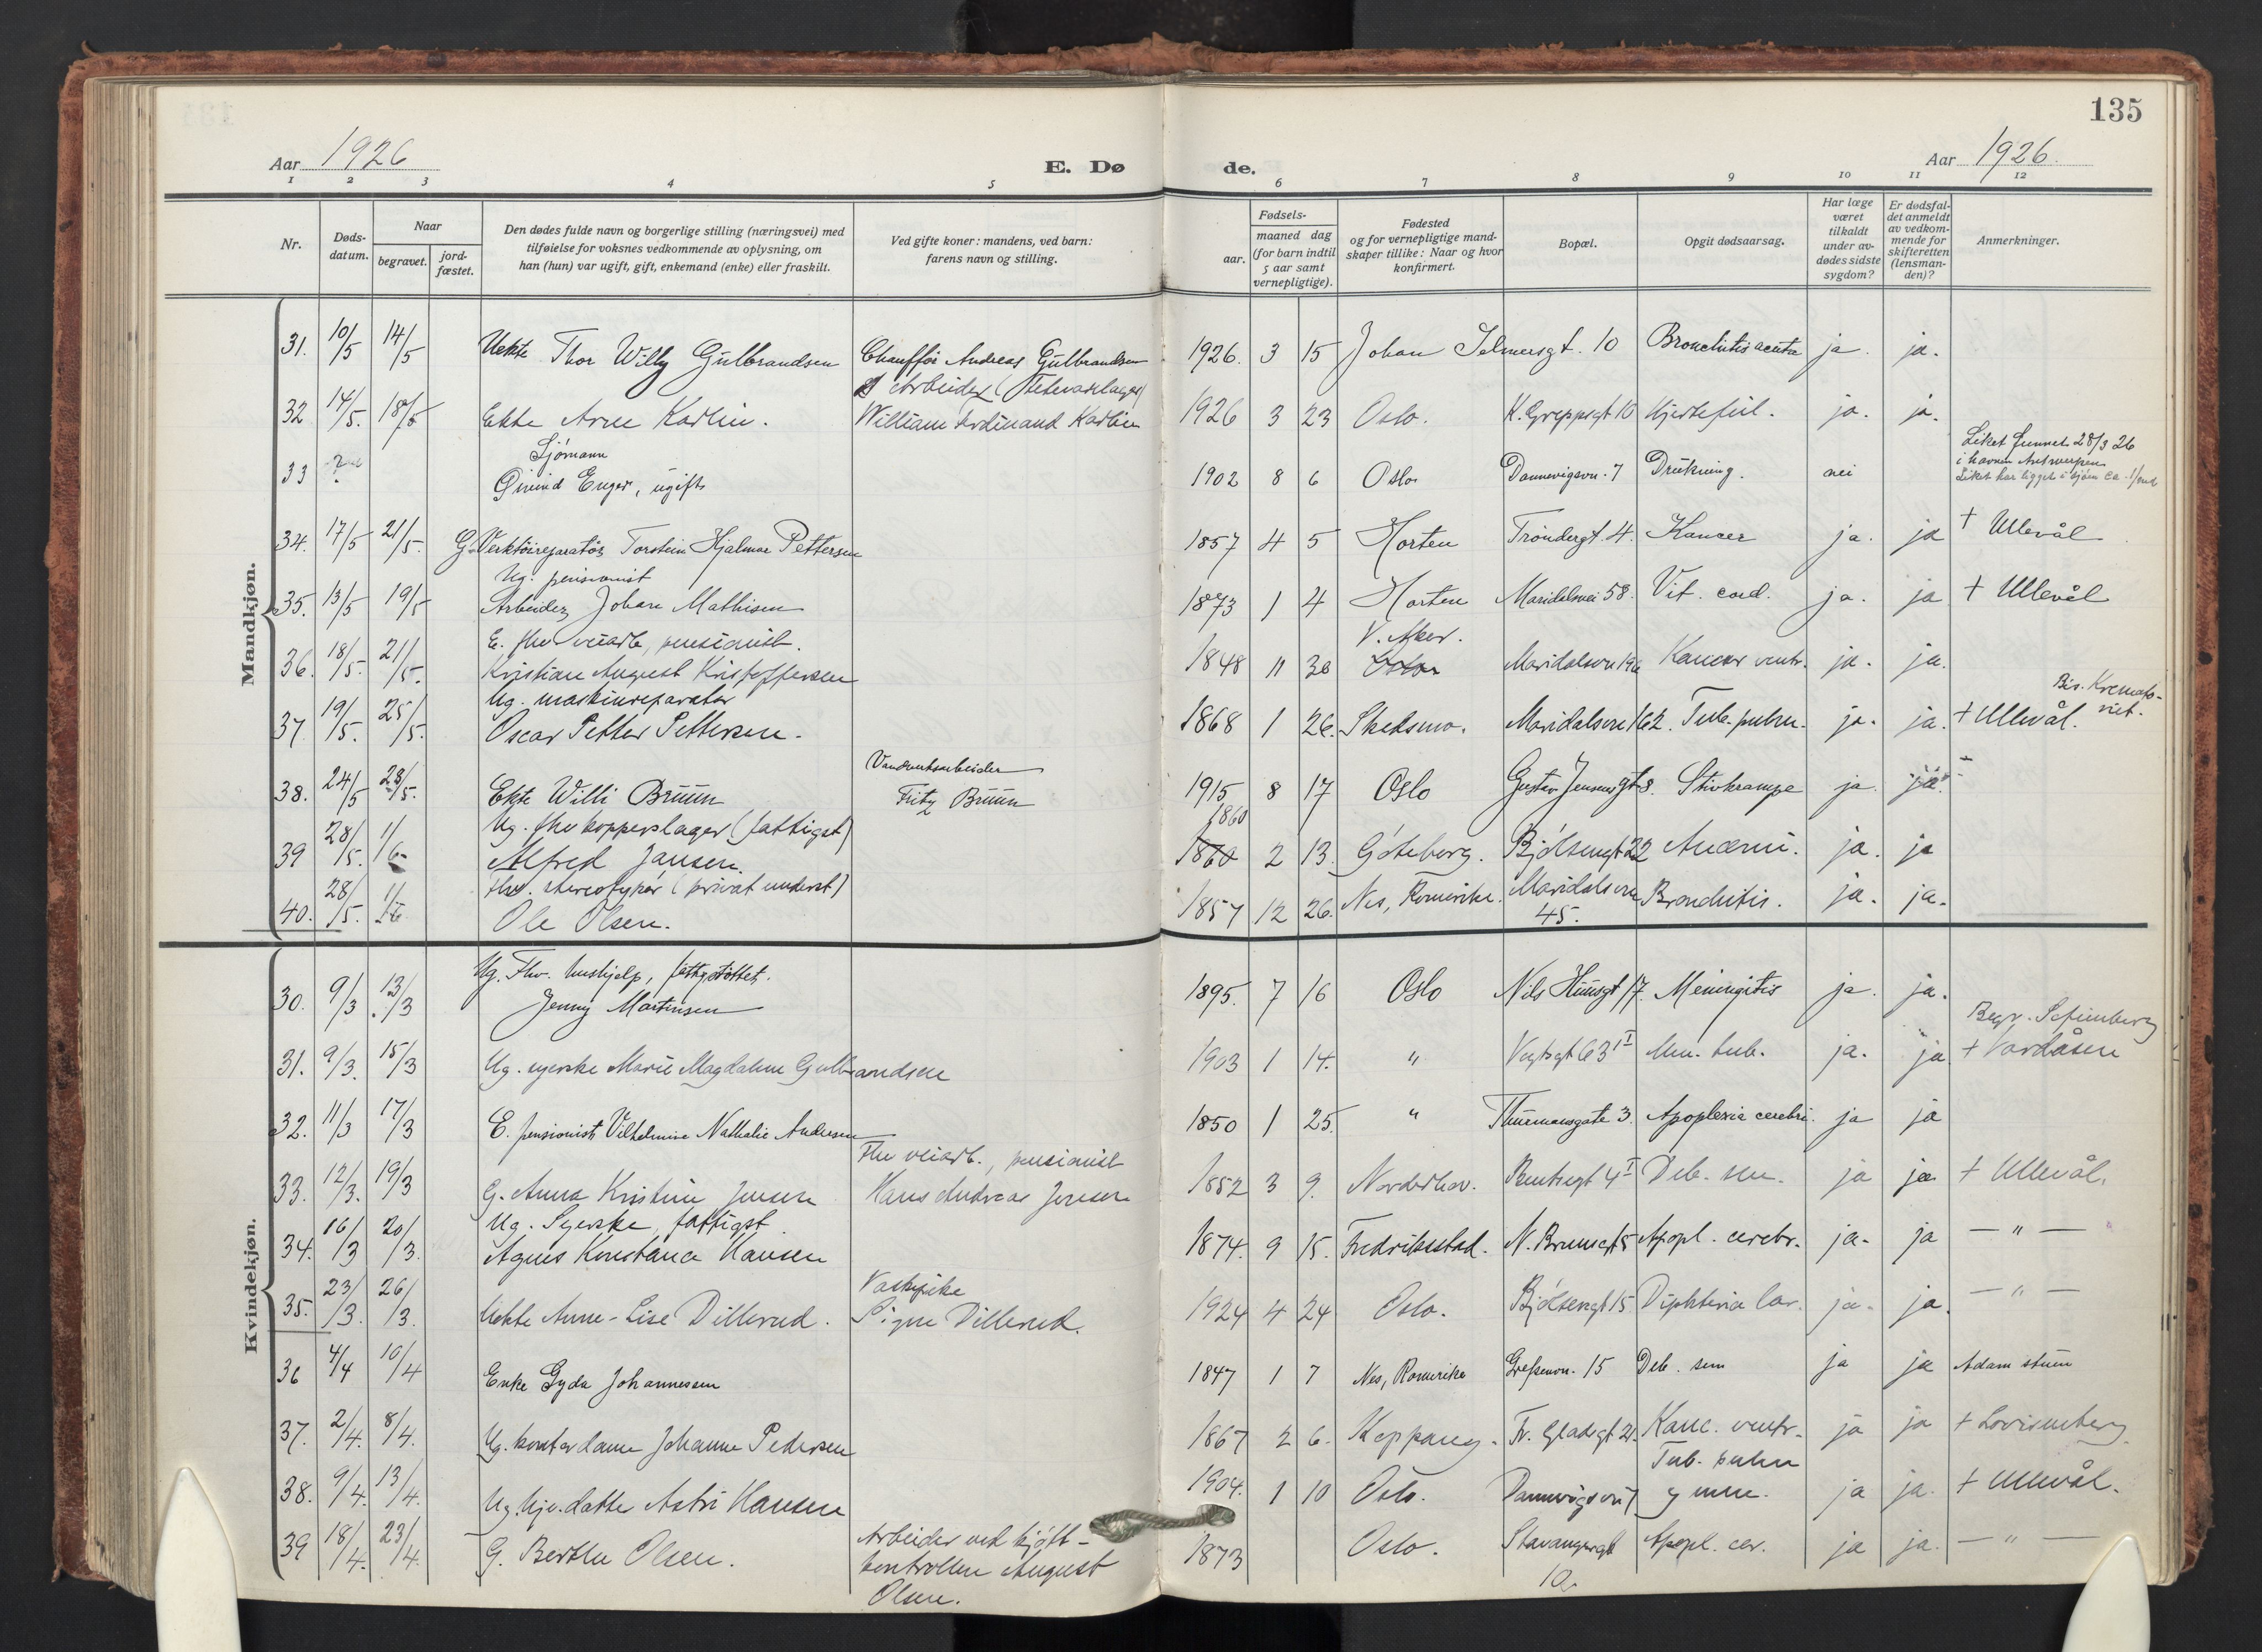 135
Aar 1926
E. Dø
de.
Aar 1926.
1 2 3 4 5 6 7 8 9 10 11 12
Nr.
Døds-
datum.
Naar
begravet.
jord-
fæstet.
Den dødes fulde navn og borgerlige stilling (næringsvei) med
tilføielse for voksnes vedkommende av oplysning, om
han (hun) var ugift, gift, enkemand (enke) eller fraskilt.
Ved gifte koner: mandens, ved barn:
farens navn og stilling.
Fødsels-
aar.
maaned dag
(for barn indtil
5 aar samt
vernepligtige).
Fødested
og for vernepligtige mand-
skaper tillike: Naar og hvor
konfirmert.
Bopæl.
Opgit dødsaarsag.
Har læge
været
tilkaldt
under av-
dødes sidste
sygdom?
Er dødsfal-
det anmeldt
av vedkom-
mende for
skifteretten
(lensman-
den)?
Anmerkninger.
Mandkjøn.
31. 10/5 14/5 Uekte Thor Willy Gulbrandsen Chauffør Andreas Gulbrandsen 1926. 3 15 Johan Selmersgt. 10 Bronchitis acuta ja. ja.
Arbeider
32 14/5. 18/5 Ekte Arne Karlin. William Ferdinand Karlin 1926 3 23 Oslo. K. Greppsgt 10 Hjertefeil. ja. ja.
Sjømann
33 ? Øivind Enger, ugift 1902 8 6 Oslo Dannevigsvn. 7 Drukning. nei
Liket funnet 28/3 26
i havnen Antwerpen
Liket har ligget i sjøen ca.
34. 17/5 21/5. G. Verktøireparatør Torstein Hjalmar Pettersen 1857 4 5 Horten Trøndergt. 4. Kancer ja. ja † Ullevål
Ug. pensionist
35. 13/5 19/5 Arbeider Johan Mathisen 1873 1 4 Horten Maridalsvei 58. Vit. cord. ja. ja † Ullevål
E. fhv veiarb, pensionist. V. Aker.
36. 18/5. 21/5. Kristian August Kristoffersen 1848 11 30 Oslo Maridalsvn 196 Kancer ventr. ja. ja.
Ug. maskinreparatør
37 19/5. 25/5. Oscar Petter Pettersen. 1868 1 26. Skedsmo. Maridalsvn 162. Tub. pulm. ja. ja. † Ullevål.
Bis. Kremato-
riet.
Vandverksarbeider
38. 24/5 28/5. Ekte Willi Bruun Fritz Bruun 1915 8 17 Oslo Gustav Jensensgt 8. Stivkrampe ja ja.
Ug. fhv kopperslager (fattigst) 1860
39 28/5. 1/6 Alfred Jansen. 1860 2 13. Göteborg. Bjølsengt 22 Anæmi. ja. ja
fhv. stereotypør (privat underst)
40. 28/5. 1/6 Ole Olsen. 1857 12 26. Nes, Romerike. Maridalsvn
45. Bronchitis. ja. ja.
Kvindekjøn.
Ug. Fhv. hushjelp, fattigstøttet.
30. 9/3 13/3 Jenny Martinsen 1895. 7 16 Oslo Nils Huusgt 17. Meningitis ja. ja.
Begr.
31. 9/3. 15/3 Ug. syerske Marie Magdalene Gulbrandsen 1903 1 14. " Vogtsgt 63 II Men. tub. ja. ja † Vardåsen
32. 11/3 17/3 E. pensionist Vilhelmine Nathalie Andersen 1850 1 25. " Thurmansgate 3. Apoplexia cerebri. ja ja
Fhv veiarb., pensionist
33. 12/3. 19/3 G. Anna Kristine Jensen Hans Andreas Jensen 1852 3 9. Norderhov. Bentsegt 4 I Deb. sen. ja ja † Ullevål.
Ug. Syerske, fattigst.
34. 16/3 20/3. Agnes Konstance Hansen 1874. 9 15. Fredrikstad. N. Brunsgt 5 Apopl. cerebr. ja. ja — " —
Vaskepike
35. 23/3. 26/3. Uekte Anne-Lise Dillerud. Signe Dillerud. 1924 4 24 Oslo. Bjølsengt 15. Diphteria lar. ja. ja. — " —
36 4/4 10/4 Enke Gyda Johannessen 1847 1 7 Nes, Romerike Grefsenvn. 15 Deb. sen ja ja Adam stuen
37. 2/4. 8/4. Ug. kontordame Johanne Pedersen 1867 2 6. Koppang. Fr. Gladsgt 21. Kanc. ventr. ja ja † Lovisenberg.
Tub. pulm
38. 9/4. 13/4. Ug. hjv. datter Astri Hansen 1904. 1 10 Oslo. Dannevigsvn 7 og men. ja ja. † Ullevål.
39 18/4. 23/4. G. Berthe Olsen. Arbeider ved kjøtt-
kontrollen August
Olsen. 1873 Oslo. Stavangergt
10. Apopl. cer. ja ja. — " —